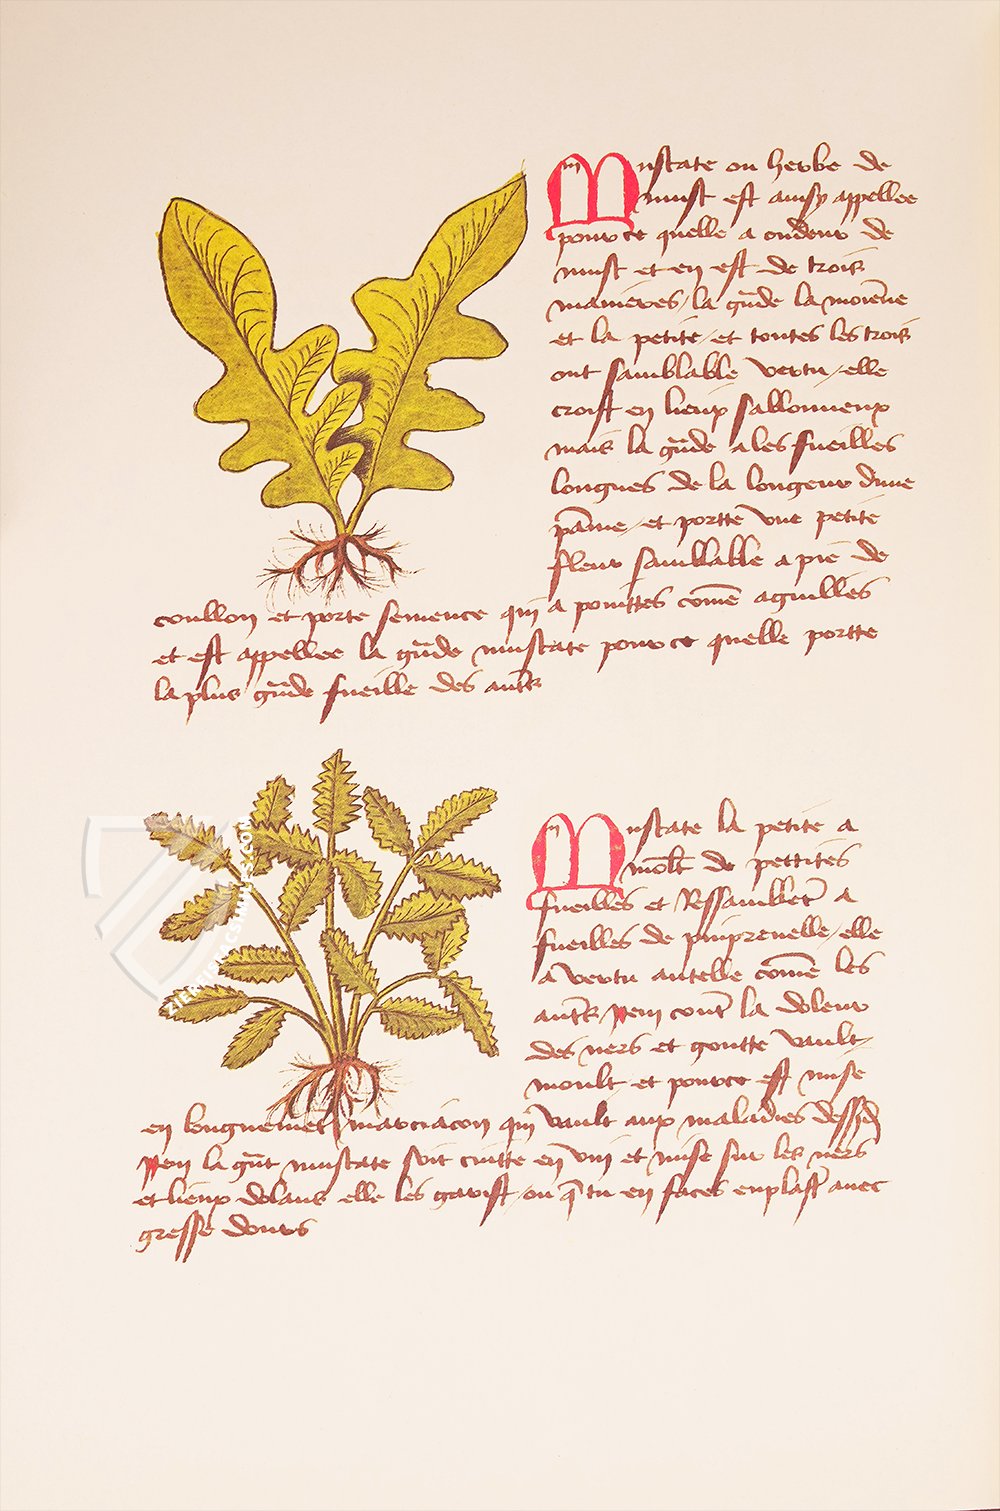 Mustate ou herbe de
must est ainsy appellee
pource quelle a oudeur de
must et en est de trois
manieres / la gñde la moiẽne
et la petite / et toutes les trois
ont samblable vertu / elle
croist en lieux sallonneux
mais la gñde a les fueilles
longues de la longeur dune
pãme / et portte vne petite
fleur samblable a pie de
coullon et porte semence qui a pointtes cõme aguilles
et est appellee la gñde mustate pource quelle portte
la plus gñde fueille des autrs
Mustate la petite a
moĩlt de pettites
fueilles et Ressamblẽt a
fueilles de pinprenelle / elle
a vertu autelle cõme les
autrs / Item contr la doleur
des ners et goutte vault
moult et pource est mise
en longuemẽt marciacon qui vault aux maladies dessd
Item la gñt mustate soit cuitte en vin et mise sur les ners
et lieux dolans elle les garist / ou q tu en faces enplastr auec
gresse dours
ZIEREIGFACSIMILES.COM